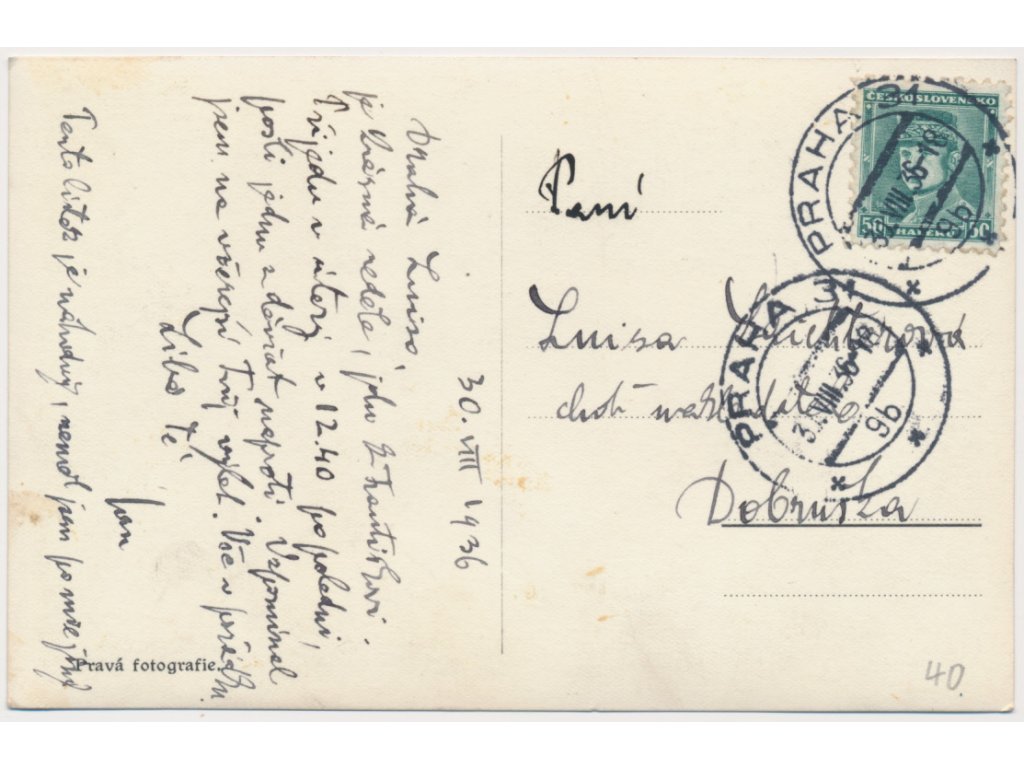 30. VIII 1936
Drahá Luiso,
je krásná neděle, jdu
Přijedu v úterý v 12.40 po poledni,
pošli jednu z děvčat naproti. Vzpomínal
jsem na včerejší Tvůj výlet. Vše v pořádku.
Líbá Tě
Jan
Tento lístek je náhodný, neměl jsem po ruce jiný
Pravá fotografie.
Paní
Luisa
choť
Dobruška
ČESKOSLOVENSKO
50 HALÉŘŮ 50
PRAHA 31
VIII 36-18
9b
PRAHA 31
VIII 36-18
9b
40